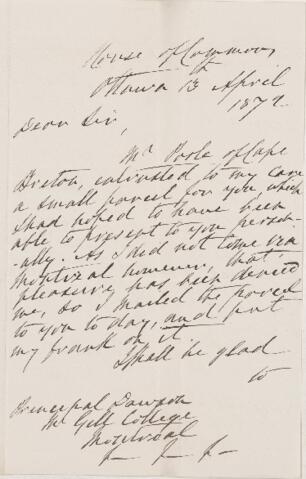 House of Commons
Ottawa 13th April
1872
Dear Sir,
Mr Poole of Cape
Breton, entrusted to my care
a small parcel for you, which
I had hoped to have been
able to present to you person-
ally. As I did not come via
Montreal however, that
pleasure has been denied
me, so I mailed the parcel
to you to day, and put
my frank on it
I shall be glad
to
Principal Dawson
McGill College
Montreal